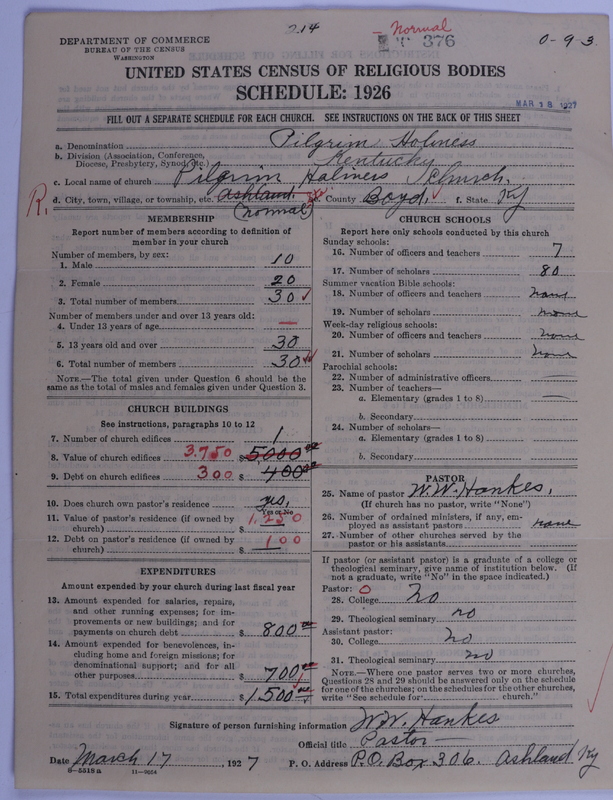 214
- Normal
376
0-9-3
DEPARTMENT OF COMMERCE
BUREAU OF THE CENSUS
WASHINGTON
UNITED STATES CENSUS OF RELIGIOUS BODIES
SCHEDULE: 1926
MAR 18 1927
FILL OUT A SEPARATE SCHEDULE FOR EACH CHURCH. SEE INSTRUCTIONS ON THE BACK OF THIS SHEET
a. Denomination Pilgrim Holiness
b. Division (Association, Conference, Diocese, Presbytery, Synod, etc.) Kentucky
c. Local name of church Pilgrim Holiness Church.
R. d. City, town, village, or township, etc. Ashland. (normal) e. County Boyd, f. State Ky
MEMBERSHIP
Report number of members according to definition of
member in your church
Number of members, by sex:
1. Male 10
2. Female 20
3. Total number of members 30
Number of members under and over 13 years old:
4. Under 13 years of age —
5. 13 years old and over 30
6. Total number of members 30
NOTE.—The total given under Question 6 should be the
same as the total of males and females given under Question 3.
CHURCH BUILDINGS
See instructions, paragraphs 10 to 12
7. Number of church edifices 1
8. Value of church edifices 3.750 $ 5000
9. Debt on church edifices 300 $ 400
10. Does church own pastor's residence yes,
Yes or No
11. Value of pastor's residence (if owned by
church) $ 1,250
12. Debt on pastor's residence (if owned by
church) $ 100
EXPENDITURES
Amount expended by your church during last fiscal year
13. Amount expended for salaries, repairs,
and other running expenses; for im-
provements or new buildings; and for
payments on church debt $ 800
14. Amount expended for benevolences, in-
cluding home and foreign missions; for
denominational support; and for all
other purposes $ 700
15. Total expenditures during year $ 1,500
CHURCH SCHOOLS
Report here only schools conducted by this church
Sunday schools:
16. Number of officers and teachers 7
17. Number of scholars 80
Summer vacation Bible schools:
18. Number of officers and teachers none
19. Number of scholars none
Week-day religious schools:
20. Number of officers and teachers none
21. Number of scholars none
Parochial schools:
22. Number of administrative officers
23. Number of teachers—
a. Elementary (grades 1 to 8) —
b. Secondary
24. Number of scholars—
a. Elementary (grades 1 to 8)
b. Secondary
PASTOR
25. Name of pastor W.W. Hankes,
(If church has no pastor, write "None")
26. Number of ordained ministers, if any, em-
ployed as assistant pastors none
27. Number of other churches served by the
pastor or his assistants
If pastor (or assistant pastor) is a graduate of a college or
theological seminary, give name of institution below. (If
not a graduate, write "No" in the space indicated.)
Pastor: O
28. College No
29. Theological seminary no
Assistant pastor:
30. College No
31. Theological seminary no
NOTE.—Where one pastor serves two or more churches,
Questions 28 and 29 should be answered only on the schedule
for one of the churches; on the schedules for the other churches,
write "See schedule for church."
Signature of person furnishing information W.W. Hankes
Official title Pastor
Date March 17, 1927 P. O. Address P.O. Box 306. Ashland Ky
8-5518 a 11-9554